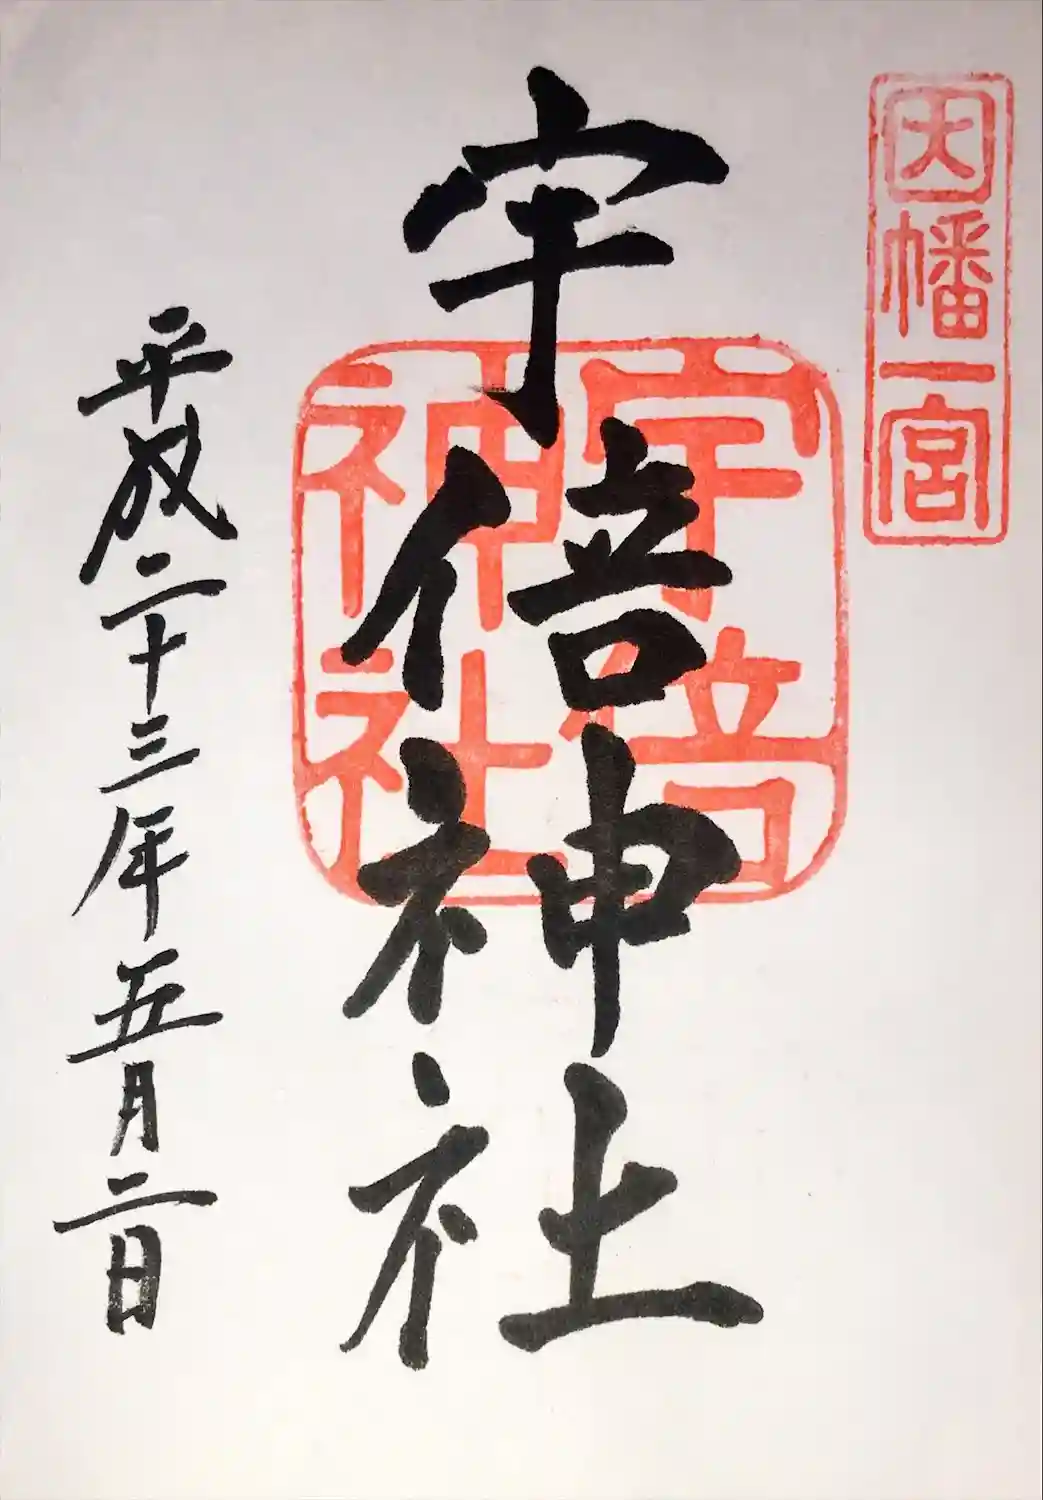 因幡一宮
宇倍神社
宇倍
神社
平成二十三年五月二日